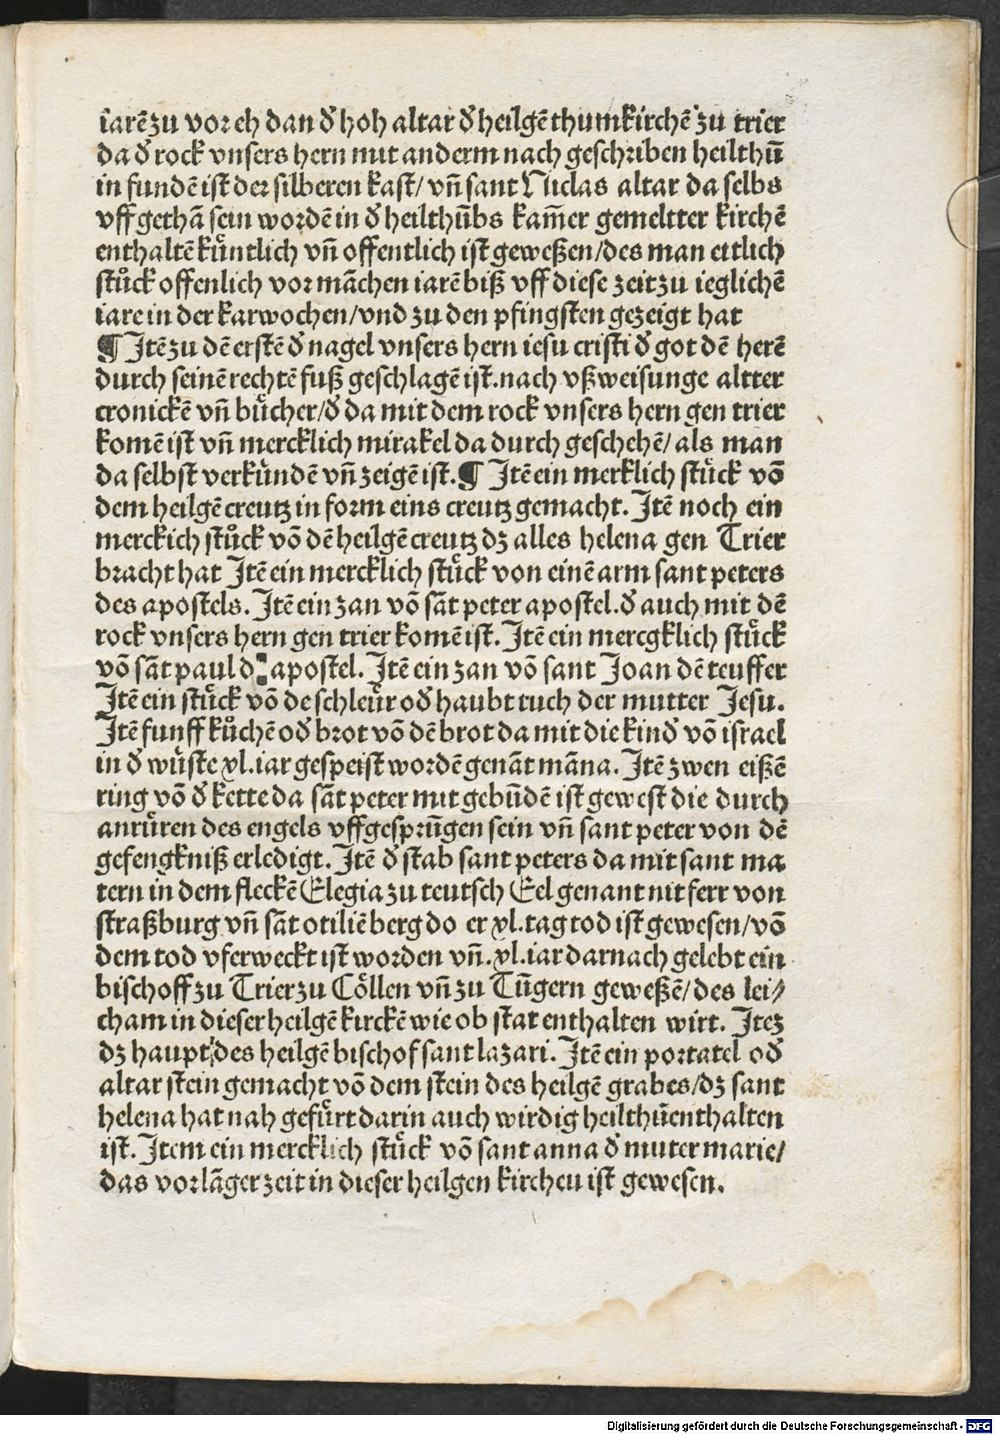 iarē zu vor eh dan d̕ hoh altar d̕ heilgē thumkirchē zu trier
da d̕ rock vnsers hern mit anderm nach geschriben heilthū
in fundē ist der silberen kast/ vn̄ sant Niclas altar da selbs
vff gethā sein wordē in d̕ heilthūbs kam̄er gemeltter kirchē
enthaltē kuͤntlich vn̄ offentlich ist geweßen/des man ettlich
stuͤck offenlich vor māchen iarē biß vff diese zeit zu ieglichē
iare in der karwochen/vnd zu den pfingsten gezeigt hat
¶ Jtē zu dē erstē d̕ nagel vnsers hern iesu cristi d̕ got dē herē
durch seinē rechtē fuß geschlagē ist.nach vßweisunge altter
cronickē vn̄ buͤcher/d̕ da mit dem rock vnsers hern gen trier
komē ist vn̄ mercklich mirakel da durch geschehē/ als man
da selbst verkuͤndē vn̄ zeigē ist.¶ Jtē ein merklich stuͤck vō
dem heilgē creutz in form eins creutz gemacht. Jtē noch ein
merckich stuͤck vō dē heilgē creutz dz alles helena gen Trier
bracht hat Jtē ein mercklich stuͤck von einē arm sant peters
des apostels. Jtē ein zan vō sāt peter apostel.d̕ auch mit dē
rock vnsers hern gen trier komē ist. Jtē ein mercgklich stuͤck
vō sāt paul apostel. Jtē ein zan vō sant Joan dē teuffer
Jtē ein stuͤck vō de schleuͤr od̕ haubt tuch der mutter Jesu.
Jtē funff kuͤchē od̕ brot vō dē brot da mit die kind̕ vō israel
in d̕ wuͤste xl.iar gespeist wordē genāt māna. Jtē zwen eißē
ring vō d̕ kette da sāt peter mit gebūdē ist gewest die durch
anruͤren des engels vffgesprūgen sein vn̄ sant peter von dē
gefengkniß erledigt. Jtē d̕ stab sant peters da mit sant ma
tern in dem fleckē Elegia zu teutsch Eel genant nit ferr von
straßburg vn̄ sāt otiliē berg do er xl.tag tod ist gewesen/vō
dem tod vferweckt ist worden vn̄.xl.iar darnach gelebt ein
bischoff zu Trier zu Coͤllen vn̄ zu Tūgern geweßē/des lei⸗
cham in dieser heilgē kirckē wie ob stat enthalten wirt. Jtez
dz haupt des heilgē bischof sant lazari. Jtē ein portatel od̕
altar stein gemacht vō dem stein des heilgē grabes/dz sant
helena hat nah gefuͤrt darin auch wirdig heilthūenthalten
ist. Jtem ein mercklich stuͤck vō sant anna d̕ muter marie/
das vor lāger zeit in dieser heilgen kircheu ist gewesen.
Digitalisierung gefördert durch die Deutsche Forschungsgemeinschaft - DFG